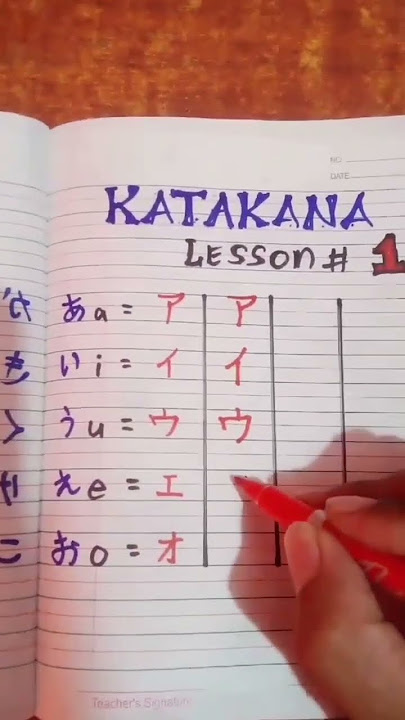 NO
DATE
KATAKANA
LESSON # 1
あ a = ア ア
い i = イ イ
う u = ウ ウ
く
え e = エ
お o = オ
こ
Teacher's Signature